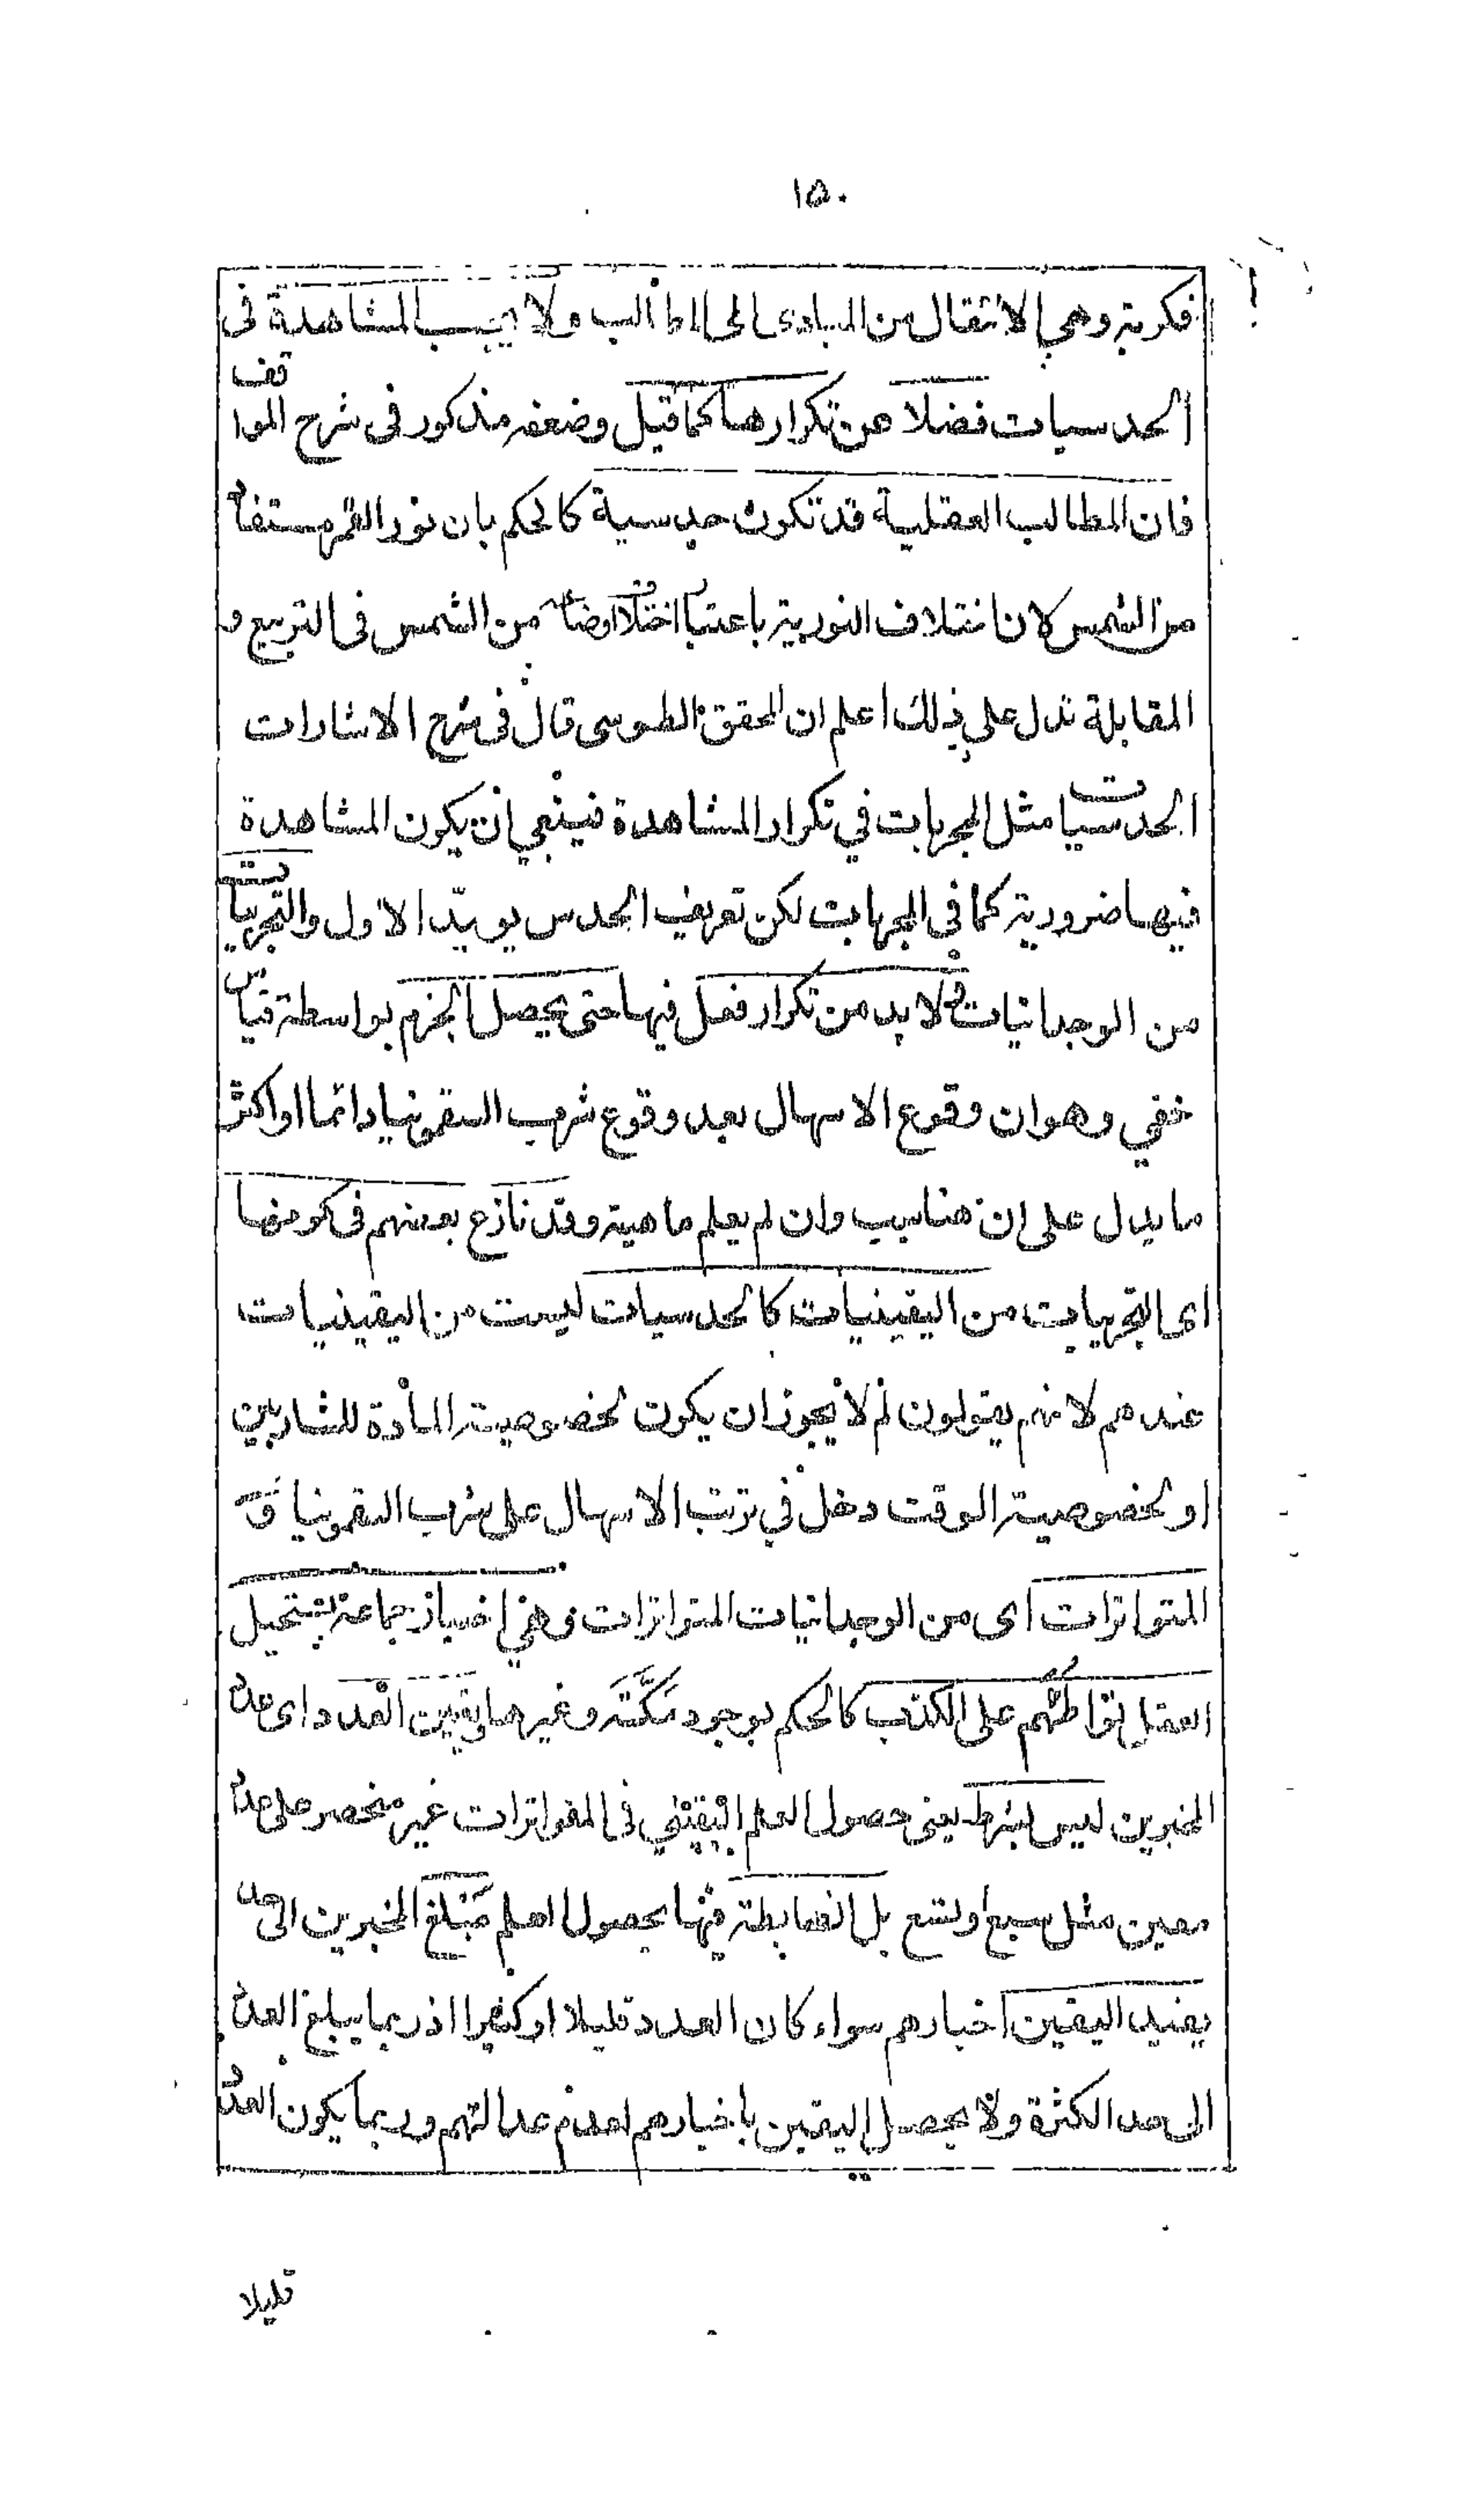 ١٥٠
فكرية وهي الانتقال من المبادى الى المطالب ولا يجب المشاهدة فى
الحدسيات فضلا عن تكرارها كما قيل وضعفه مذكور فى شرح المواقف
فان المطالب العقلية قد تكون حدسية كالحكم بان نور القمر مستفاد
من الشمس لان اختلاف النورية باعتبار اختلاف اوضاعه من الشمس فى التربيع و
المقابلة تدل على ذلك اعلم ان المحقق الطوسى قال فى شرح الاشارات
الحدسيات مثل المجربات في تكرار المشاهدة فينبغي ان يكون المشاهدة
فيها ضرورية كما في المجربات لكن تعريف الحدس يويد الاول والتجربيات
من الوجدانيات و لا بد من تكرار فعل فيها حتى يحصل الجزم بواسطة قياس
خفي وهو ان وقوع الاسهال بعد وقوع شرب السقمونيا دائما او اكثر
ما يدل على ان هنا سبب وان لم يعلم ماهيته وقد نازع بعضهم فى كونها
اى التجربيات من اليقينيات كالحدسيات ليست من اليقينيات
عندهم لانهم يقولون لم لا يجوز ان يكون لخصوصية المادة للشاربين
او لخصوصية الوقت دخل في ترتب الاسهال على شرب السقمونيا و
المتواترات اى من الوجدانيات المتواترات وهي اخبار جماعة يستحيل
العقل تواطئهم على الكذب كالحكم بوجود مَكَّتَه وغيرها وتعيين العدد اى عدد
المخبرين ليس بشرط يعنى حصول العلم اليقيني فى المتواترات غير منحصر على عدد
معين مثل سبع او تسع بل الضابطة فيها بحصول العلم مَبْلغ المخبرين الى حد
يفيد اليقين اخبارهم سواء كان العدد قليلا او كثيرا اذ ربما يبلغ العدد
الى حد الكثرة ولا يحصل اليقين باخبارهم لعدم عدالتهم وربما يكون العدد
قليلا